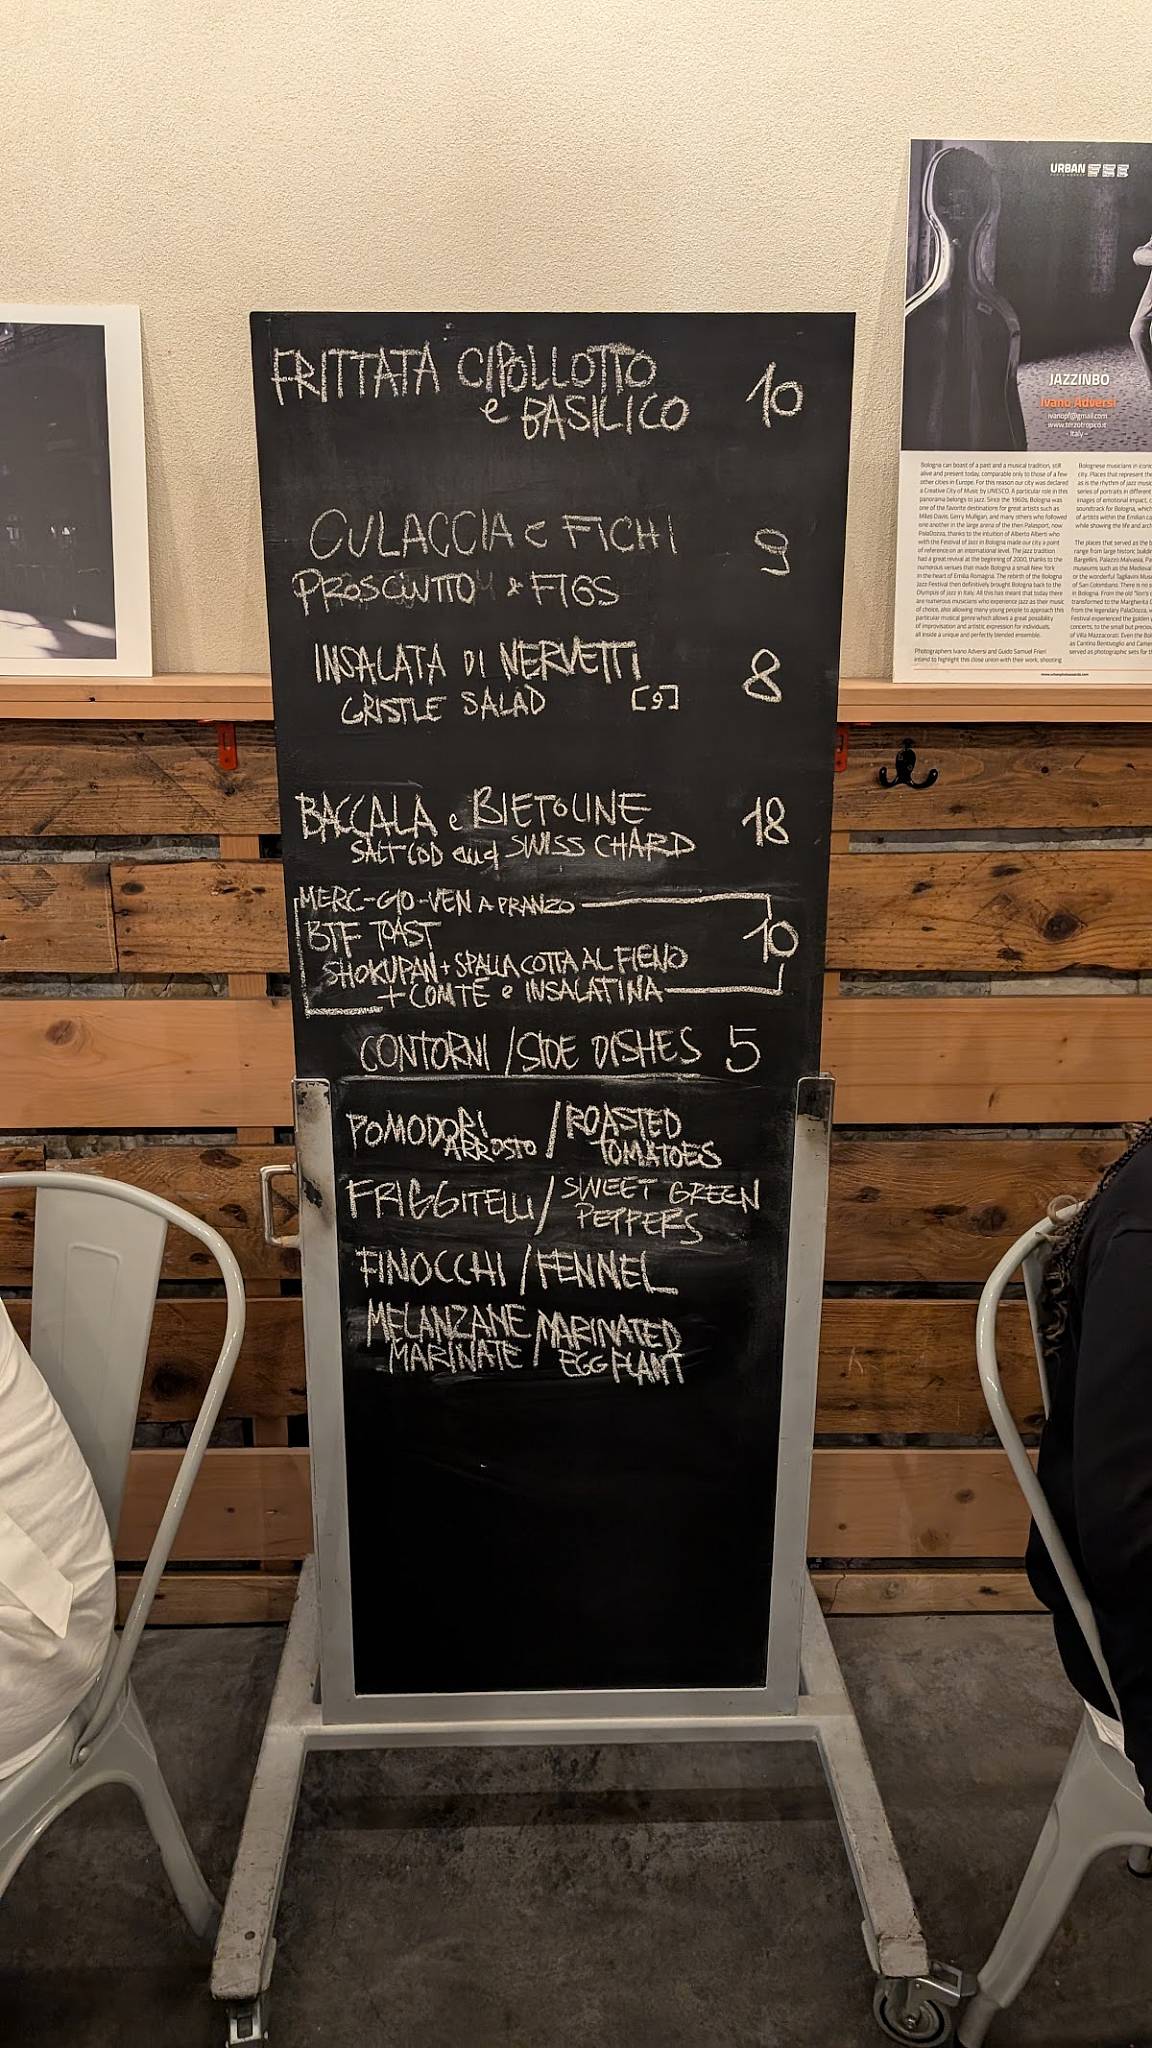 FRITTATA CIPOLLOTTO
e BASILICO 10
CULACCIA e FICHI 9
PROSCIUTTO & FIGS
INSALATA DI NERVETTI 8
GRISTLE SALAD [9]
BACCALA e BIETOLINE 18
SALT COD and SWISS CHARD
MERC-GIO-VEN A PRANZO
BTF TOAST 10
SHOKUPAN + SPALLA COTTA AL FIENO
+ COMTÉ e INSALATINA
CONTORNI / SIDE DISHES 5
POMODORI / ROASTED
ARROSTO TOMATOES
FRIGGITELLI / SWEET GREEN
PEPPERS
FINOCCHI / FENNEL
MELANZANE / MARINATED
MARINATE EGGPLANT
URBAN
JAZZINBO
Ivano Adversi
ivanopf@gmail.com
www.terzotropico.it
- Italy -
Bologna can boast of a past and a musical tradition, still
alive and present today, comparable only to those of a few
other cities in Europe. For this reason our city was declared
a Creative City of Music by UNESCO. A particular role in this
panorama belongs to jazz. Since the 1960s, Bologna was
one of the favorite destinations for great artists such as
Miles Davis, Gerry Mulligan, and many others who followed
one another in the large arena of the then Palasport, now
PalaDozza, thanks to the intuition of Alberto Alberti who
with the Festival of Jazz in Bologna made our city a point
of reference on an international level. The jazz tradition
had a great revival at the beginning of 2000, thanks to the
numerous venues that made Bologna a small New York
in the heart of Emilia Romagna. The rebirth of the Bologna
Jazz Festival then definitively brought Bologna back to the
Olympus of jazz in Italy. All this has meant that today there
are numerous musicians who experience jazz as their music
of choice, also allowing many young people to approach this
particular musical genre which allows a great possibility
of improvisation and artistic expression for individuals,
all inside a unique and perfectly blended ensemble.
Photographers Ivano Adversi and Guido Samuel Frieri
intend to highlight this close union with their work, shooting
Bolognese musicians in
city. Places that represent the
as is the rhythm of jazz
series of portraits in different
images of emotional impact,
soundtrack for Bologna,
of artists within the Emilian
while showing the life and
The places that served as the
range from large historic
Bargellini, Palazzo Malvasia,
museums such as the Medieval
or the wonderful Tagliavini
of San Colombano. There is no
in Bologna. From the old
transformed to the Margherita
from the legendary PalaDozza,
Festival experienced the golden
concerts, to the small but
of Villa Mazzacorati. Even the
as Cantina Bentivoglio and
served as photographic sets for